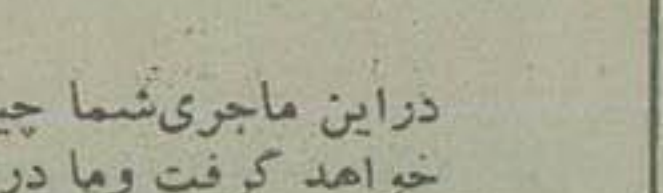 دراین ماجری شما
خواهد گرفت وما در